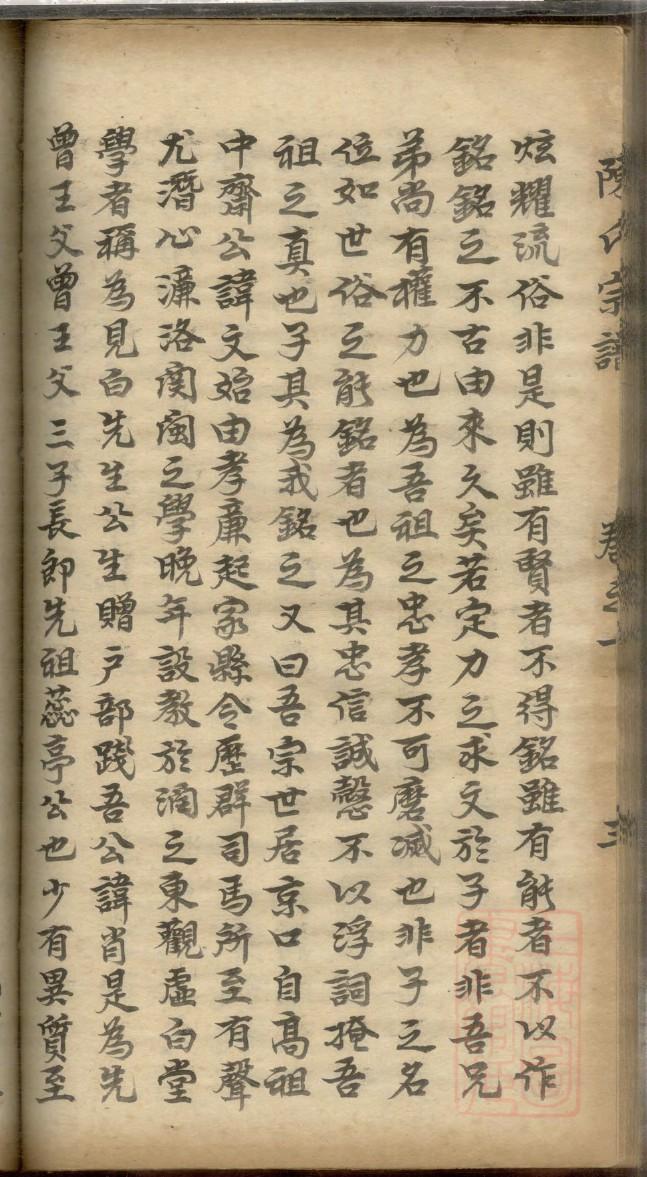 陳氏宗譜 卷之一 三
炫耀流俗非是則雖有賢者不得銘雖有能者不以作
銘銘之不古由來久矣若定力之求文於子者非吾兄
弟尚有權力也為吾祖之忠孝不可磨滅也非子之名
位如世俗之能銘者也為其忠信誠慤不以浮詞掩吾
祖之真也子其為我銘之又曰吾宗世居京口自高祖
中齋公諱文始由孝亷起家縣令歷群司馬所至有聲
尤潛心濂洛関閩之學晚年設教於潤之東觀虛白堂
學者稱為見白先生公生贈戶部踐吾公諱肖是為先
曾王父曾王父三子長即先祖蕊亭公也少有異質至